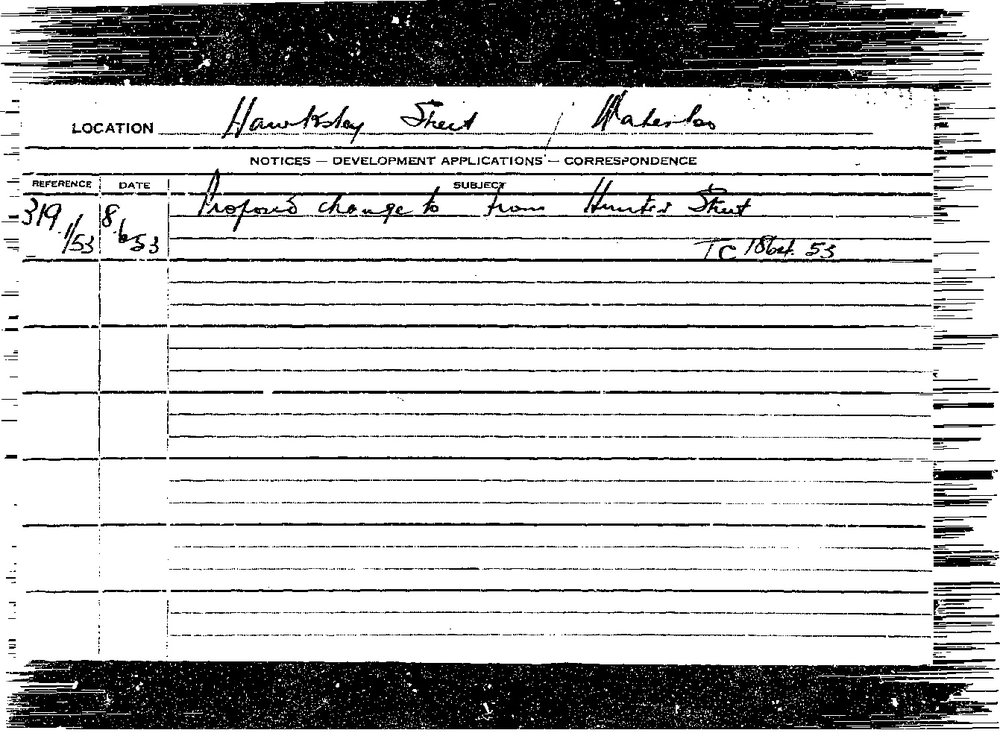 LOCATION Hawksley Street / Waterloo
NOTICES — DEVELOPMENT APPLICATIONS — CORRESPONDENCE
REFERENCE DATE SUBJECT
319 8. Proposed change to from Hunter Street
1/53 6 53 TC 18 53